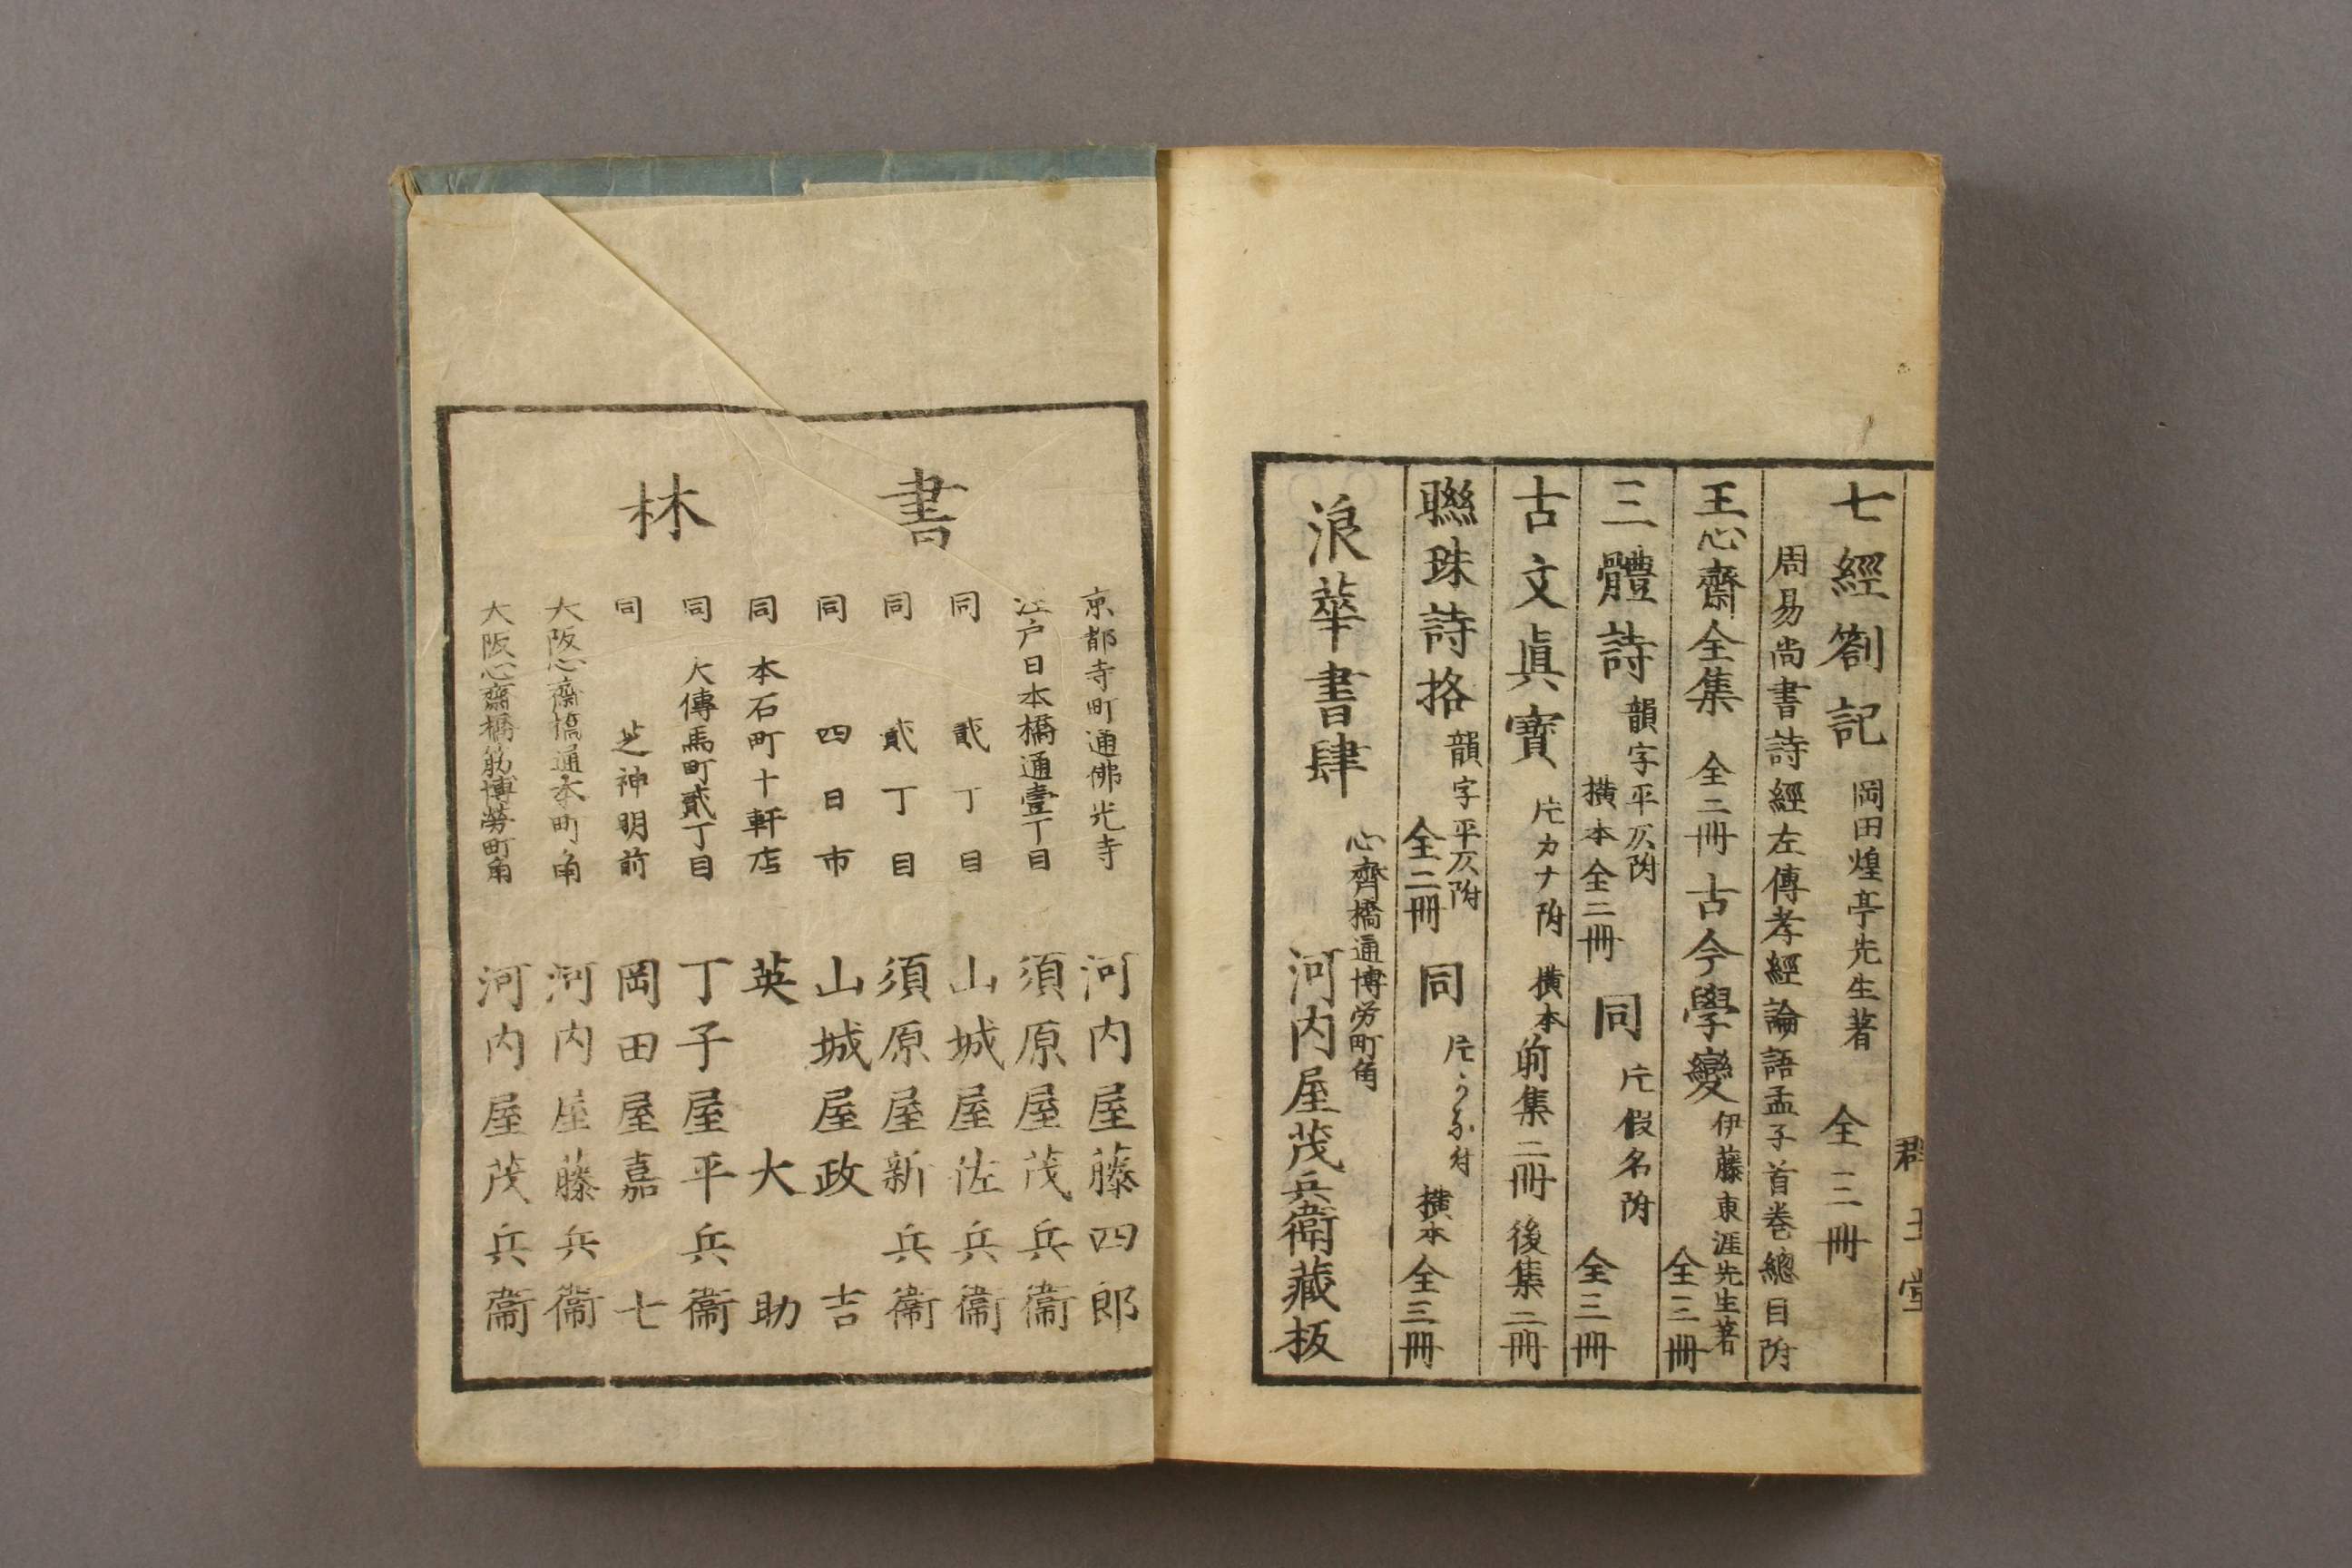 群玉堂
七經劄記 岡田煌亭先生著 全三冊
周易尚書詩經左傳孝經論語孟子首巻總目附
王心齋全集 全二冊 古今學變 伊藤東涯先生著 全三冊
三體詩 韻字平仄附 横本全二冊 同 片假名附 全三冊
古文眞寶 片カナ附 横本前集二冊 後集二冊
聯珠詩格 韻字平仄附 全二冊 同 片かな付 横本 全三冊
浪華書肆 心齊橋通博労町角 河内屋茂兵衛藏板
書林
京都寺町通佛光寺 河内屋藤四郎
江戸日本橋通壹丁目 須原屋茂兵衞
同 貮丁目 山城屋佐兵衞
同 貮丁目 須原屋新兵衞
同 四日市 山城屋政吉
同 本石町十軒店 英大助
同 大傳馬町貮丁目 丁子屋平兵衞
同 芝神明前 岡田屋嘉七
大阪心齋橋通本町角 河内屋藤兵衞
大阪心齋橋筋博勞町角 河内屋茂兵衞